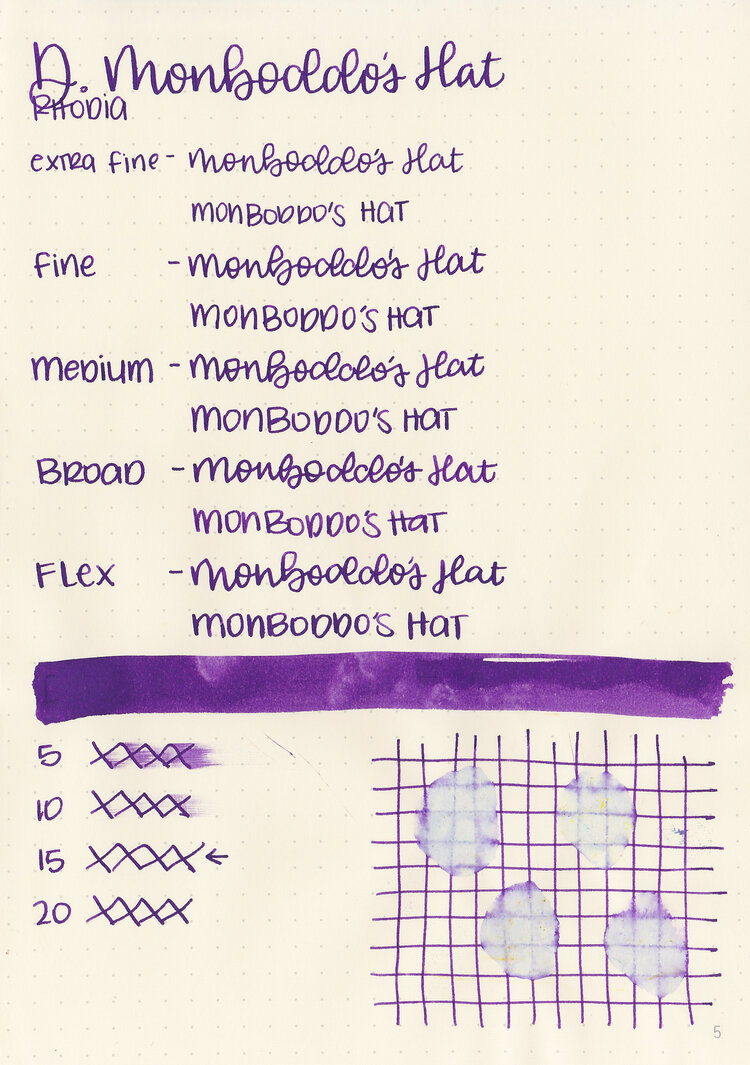 D. Monboddo's Hat
RHODIA
extra fine - Monboddo's Hat
MONBODDO'S HAT
fine - Monboddo's Hat
MONBODDO'S HAT
Medium - Monboddo's Hat
MONBODDO'S HAT
BROAD - Monboddo's Hat
MONBODDO'S HAT
FLex - Monboddo's Hat
MONBODDO'S HAT
5 XXXX
10 XXXX
15 XXXX ←
20 XXXX
5